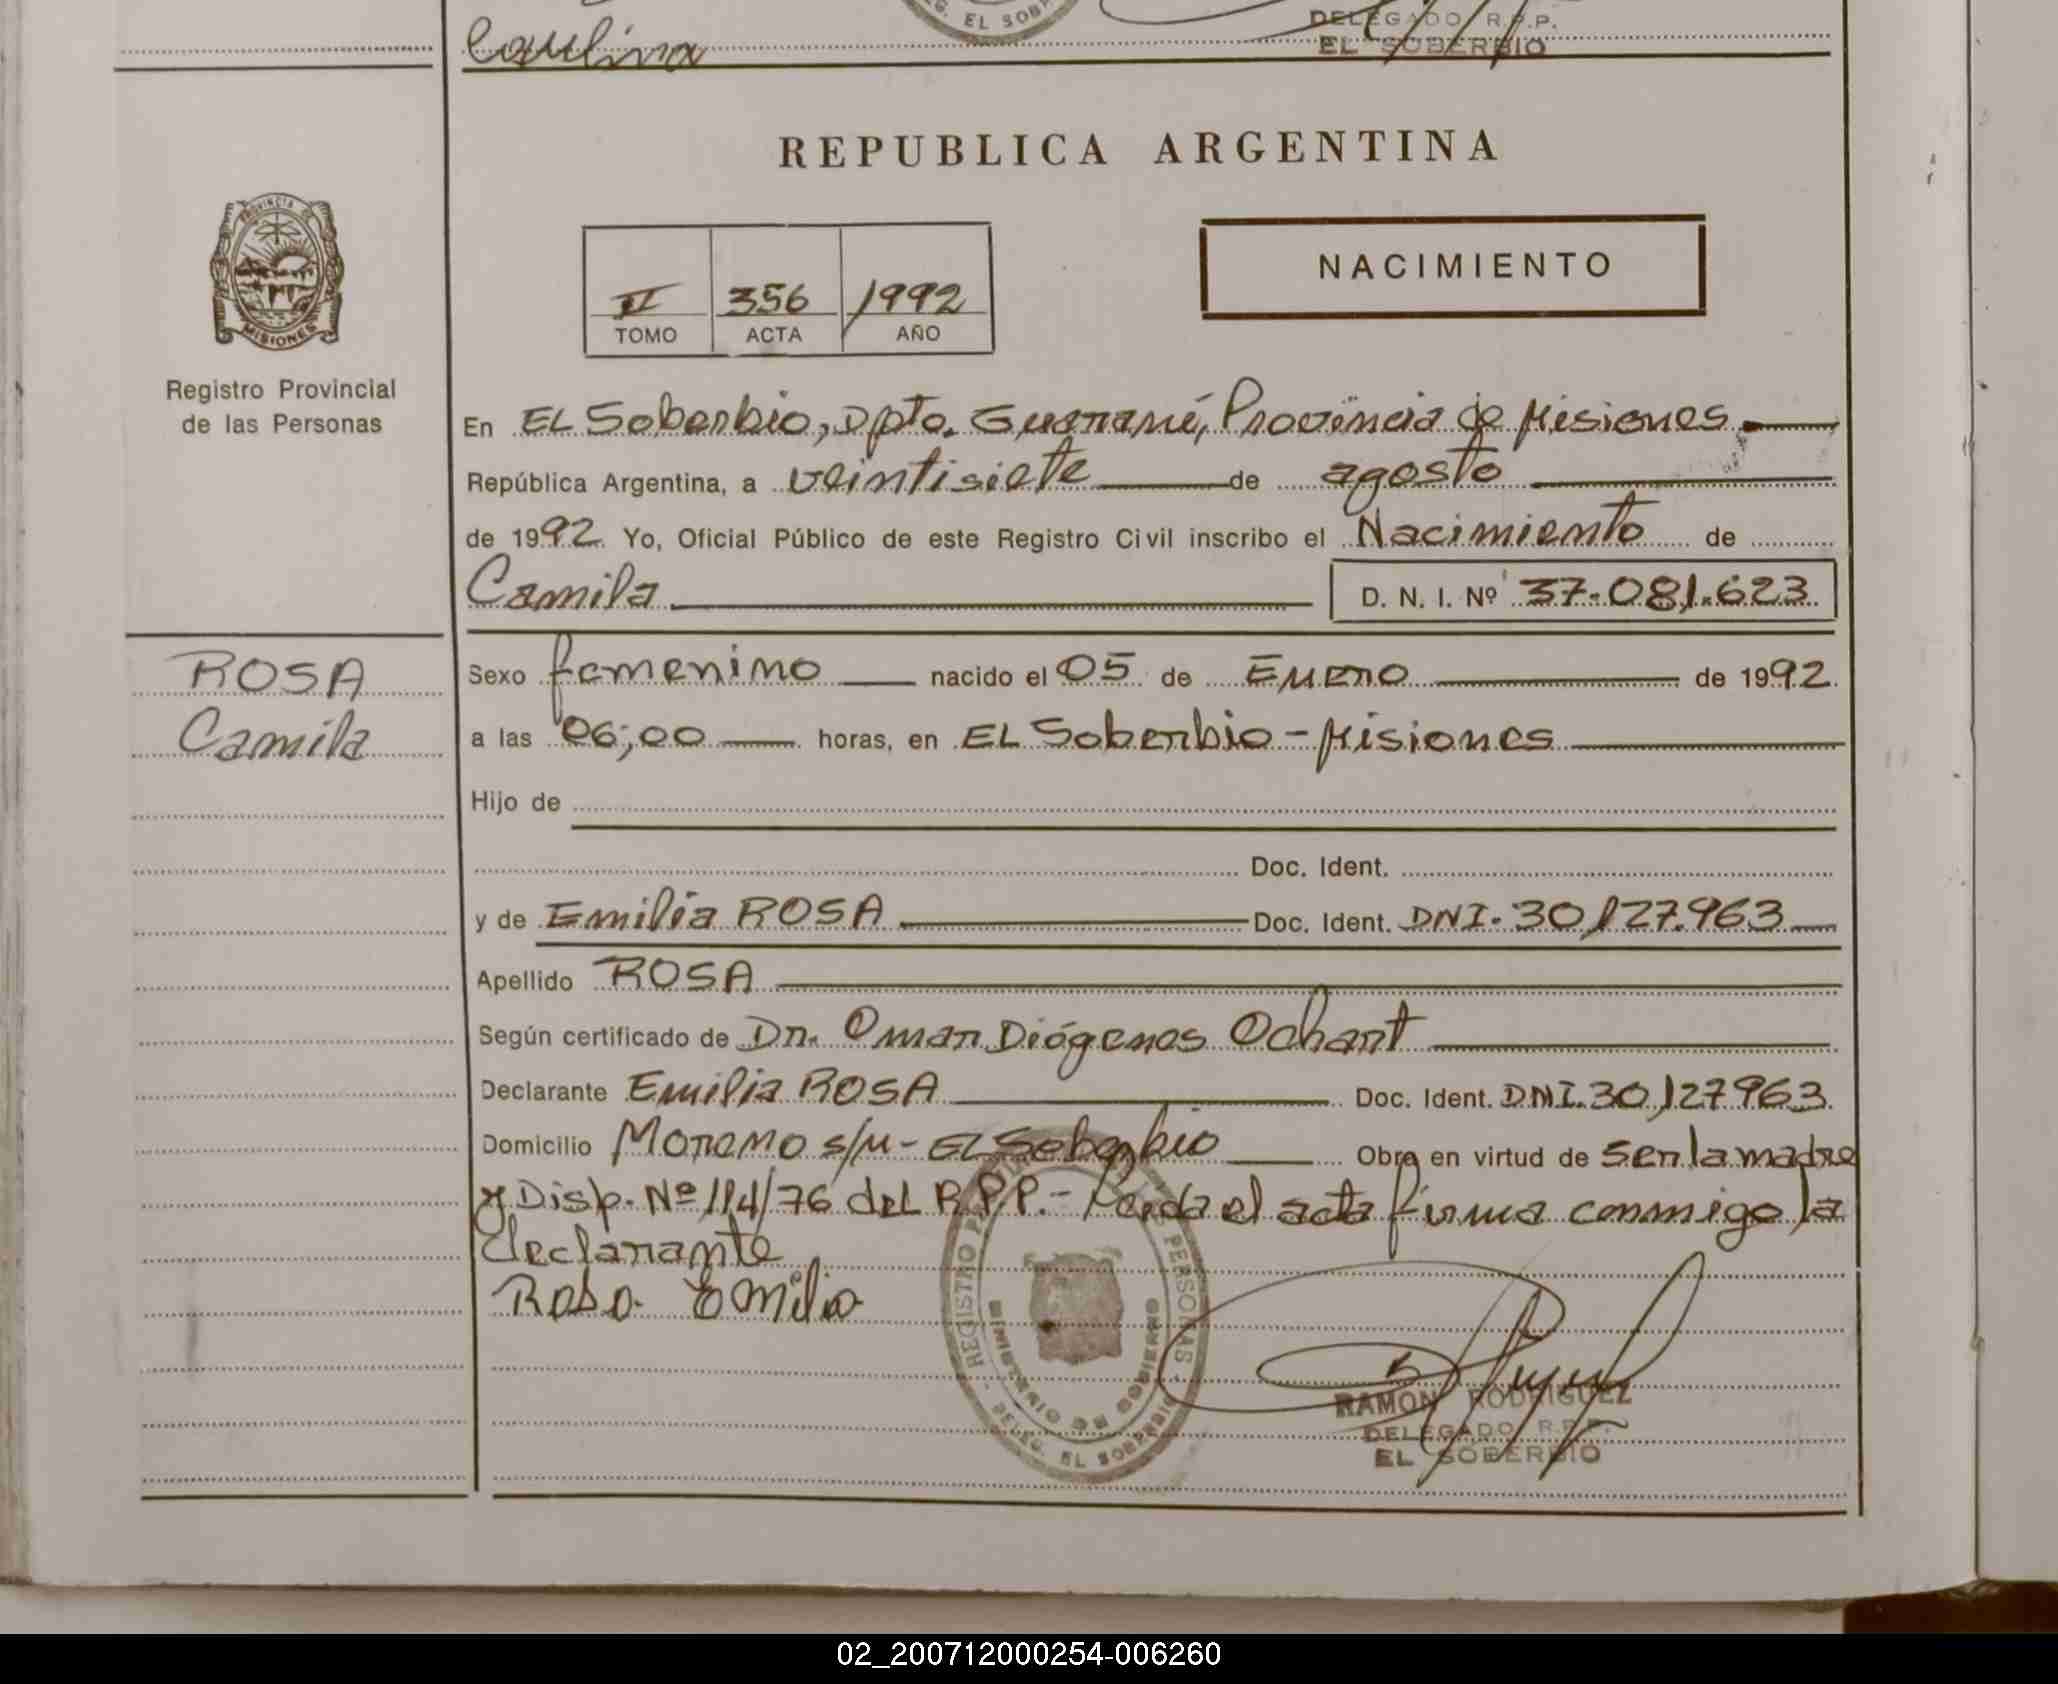 DELEGADO R.P.P.
EL SOBERBIO
REPUBLICA ARGENTINA
PROVINCIA DE
MISIONES
Registro Provincial
de las Personas
II 356 1992
TOMO ACTA AÑO
NACIMIENTO
En EL Soberbio, Dpto. Guaraní, Provincia de Misiones.
República Argentina, a veintisiete de agosto
de 1992 Yo, Oficial Público de este Registro Civil inscribo el Nacimiento de
Camila D. N. I. Nº 37.081.623
ROSA
Camila
Sexo femenino nacido el 05 de Enero de 1992
a las 06,00 horas, en EL Soberbio - Misiones
Hijo de
Doc. Ident.
y de Emilia ROSA Doc. Ident. DNI. 30127.963
Apellido ROSA
Según certificado de Dr. Omar Diógenes Ochart
Declarante Emilia ROSA Doc. Ident. DNI. 30127963
Domicilio Moreno s/n - EL Soberbio Obra en virtud de ser la madre
y Disp. Nº 114/76 del R.P.P. - Leída el acta firma conmigo la
declarante
Rosa Emilia
REGISTRO PERSONAS
MINISTERIO DE GOBIERNO
DELEG. EL SOBERBIO
RAMON RODRIGUEZ
DELEGADO R.P.P.
EL SOBERBIO
02_200712000254-006260